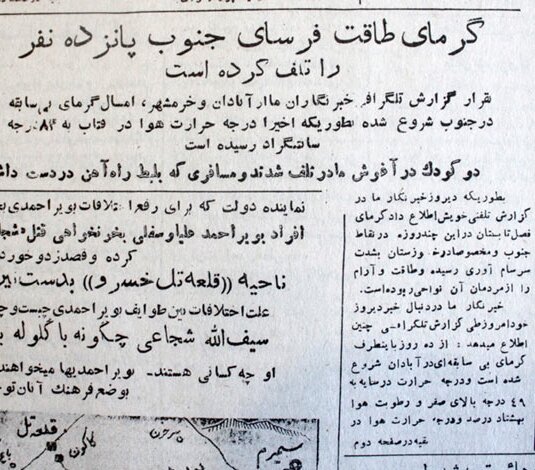 گرمای طاقت فرسای جنوب پانزده نفر
را تلف کرده است
بقرار گزارش تلگرافی خبرنگاران ما از آبادان و خرمشهر، امسال گرمای بی سابقه
در جنوب شروع شده بطوریکه اخیرا درجه حرارت هوا در آفتاب به ۸۴ درجه
سانتیگراد رسیده است
دو کودک در آغوش مادر تلف شدند و مسافری که بلیط راه آهن در دست داشت
بطوریکه دیروز خبر نگار ما در
گزارش تلفنی خویش اطلاع داد گرمای
فصل تابستان در این چند روزه در نقاط
جنوب و مخصوصا در خوزستان بشدت
سرسام آوری رسیده و طاقت و آرام
را از مردمان آن نواحی ربوده است.
خبر نگار ما در دنبال خبر دیروز
خود امروز طی گزارش تلگرافی چنین
اطلاع میدهد : از ده روز باینطرف
گرمای بی سابقه ای در آبادان شروع
شده است و درجه حرارت در سایه به
۴۹ درجه بالای صفر و رطوبت هوا
بهشتاد درصد و درجه حرارت هوا در
بقیه در صفحه دوم
نماینده دولت که برای رفع اختلافات بویر احمدی
افراد بویر احمد علیا و سفلی بخونخواهی قتل
کرده و قصد زد و خورد
ناحیه ((قلعه تل خسرو)) بدست
علت اختلافات بین طوایف بویر احمدی چیست و
سیف الله شجاعی چگونه با گلوله
او چه کسانی هستند - بویر احمدیها میخواهند
بوضع فرهنگ آنان
قلعه تل
کاکون
سرخون
سمیرم